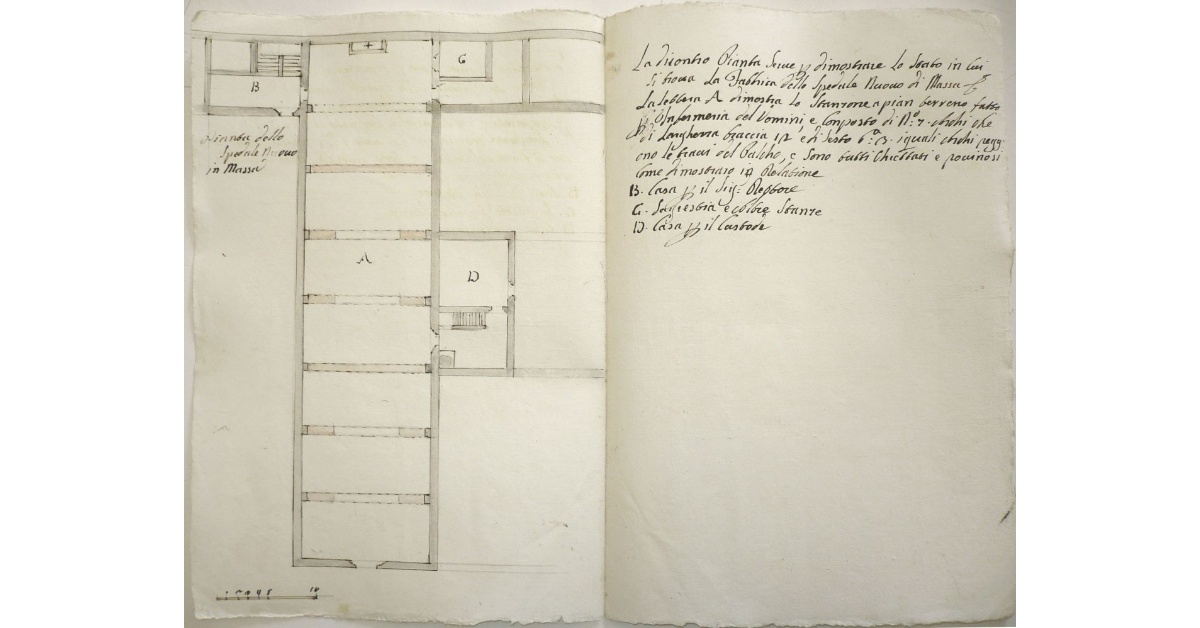 G
B
Pianta dello
Spedale Nuovo
in Massa
A
D
10
La dicontro Pianta Serve p dimostrare lo Stato in Cui
Si trova La Fabbrica dello Spedale Nuovo di Massa
La lettera A dimostra lo Stanzone a pian terreno fatto
p Infermeria del Uomini e Composto di N.º 7. Archi che
di Largherza braccia 12 e di Sesto 6.ª 3. iquali Archi regg-
ono le travi del Palcho, e Sono tutti Chiettati e rovinosi
Come dimostraro in Relatione
B. Casa p il Sig.r Rettore
G. Sagrestia e Altre Stanze
D. Casa p il Custode